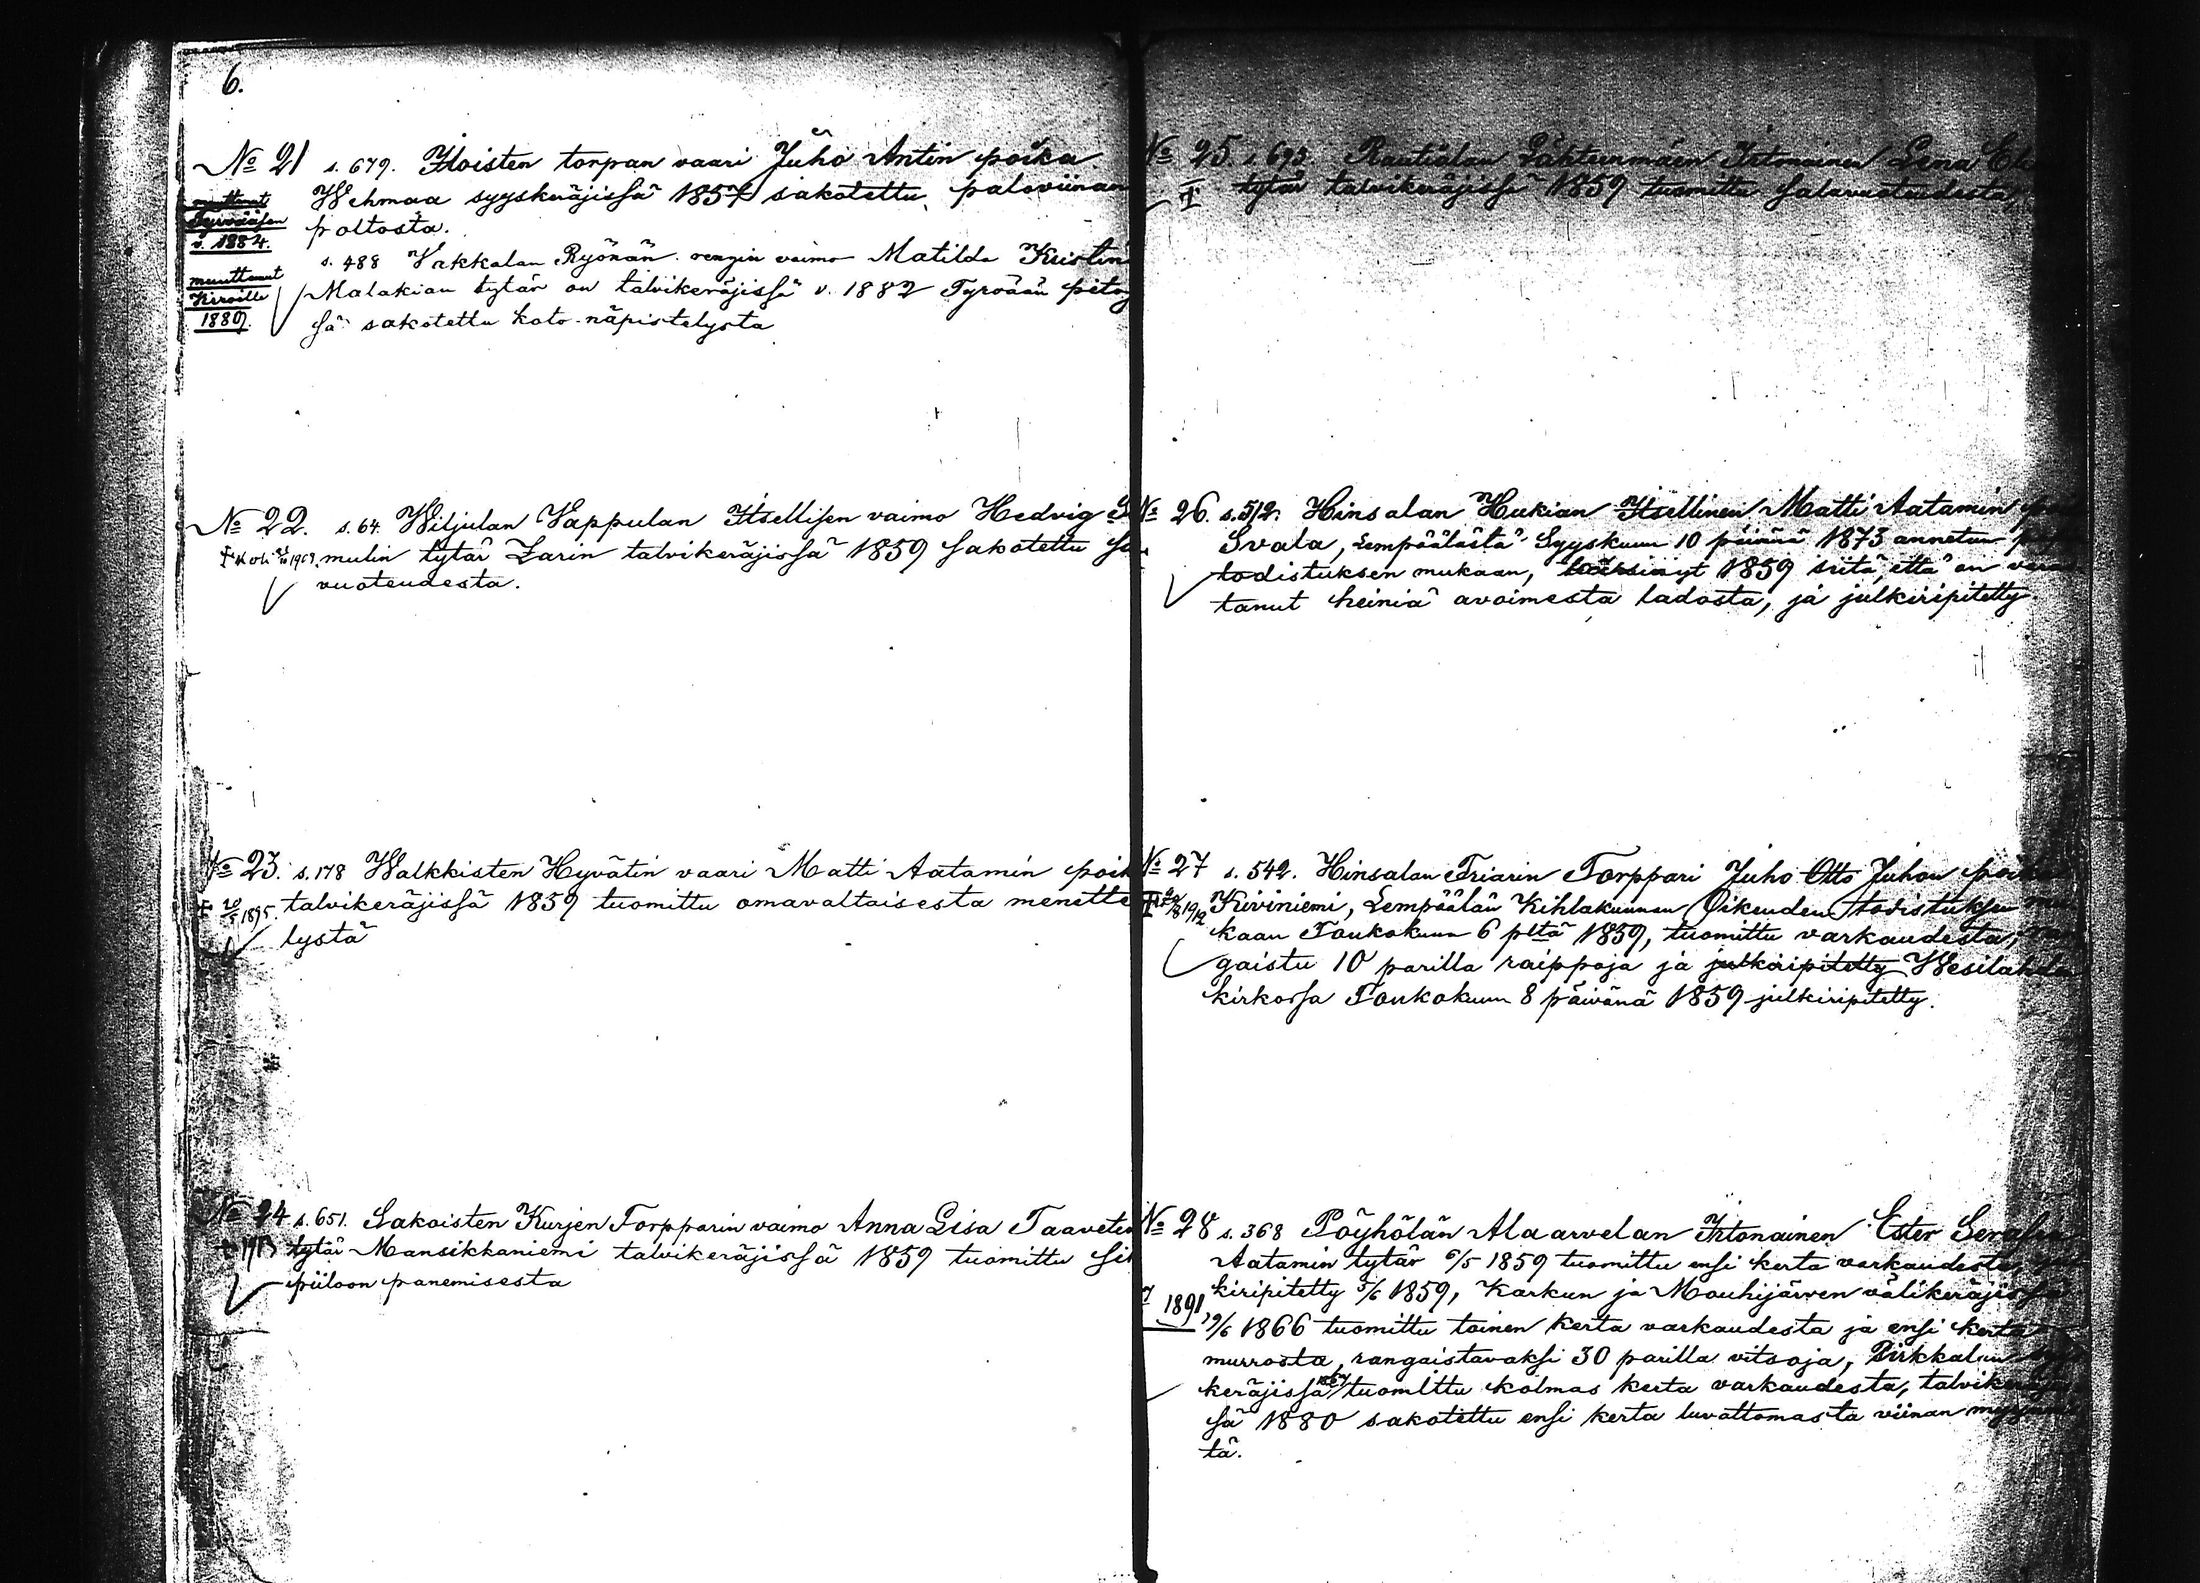 6.
No 21 s. 679. Iloisten torpan vaari Juho Antin poika
muuttanut Tyrvääsen v. 1884.
Wehmaa syyskeräjissä 1857 sakotettu paloviinan
poltosta.
s. 488 Vakkalan Ryönän rengin vaimo Matilda Kristin
muuttanut Kiroille 1889.
Malakian tytär on talvikeräjissä v. 1882 Tyrvään pitä
sä sakotettu koto-näpistelysta
No 22. s. 64. Wiljulan Vappulan Itsellisen vaimo Hedvig
mulin tytär Zarin talvikeräjissä 1859 sakotettu sa
vuoteudesta.
No 23. s. 178 Walkkisten Hyvätin vaari Matti Aatamin poik
† 20/5 1895. talvikeräjissä 1859 tuomittu omavaltaisesta menette
lystä
No 24 s. 651. Sakoisten Kurjen Torpparin vaimo Anna Lisa Taavetin
† 1913 tytär Mansikkaniemi talvikeräjissä 1859 tuomittu
piiloon panemisesta
No 25. s. 695 Rautialan Lähteenmäen Irtonainen Lena
† tytär talvikeräjissä 1859 tuomittu salavuoteudesta,
No 26. s. 512. Hinsalan Hukian Itsellinen Matti Aatamin
Svala, Lempäälästä Syyskuun 10 päivänä 1873 annetun
todistuksen mukaan, kärsinyt 1859 siitä, että on varas
tanut heiniä avoimesta ladosta, ja julkiripitetty
No 27 s. 542. Hinsalan Friarin Torppari Juho Otto Juhon poika
Kiviniemi, Lempäälän Kihlakunnan Oikeuden todistuksen mu
kaan Toukokuun 6 pltä 1859, tuomittu varkaudesta,
gaistu 10 parilla raippoja ja julkiripitetty Wesilahden
kirkossa Toukokuun 8 päivänä 1859 julkiripitetty.
No 28 s. 368 Pöyhölän Alaarvelan Irtonainen Ester Serafia
Aatamin tytär 6/5 1859 tuomittu ensi kerta varkaudesta,
kiripitetty 5/6 1859, Karkun ja Mouhijärven välikeräjissä
1891
19/6 1866 tuomittu toinen kerta varkaudesta ja ensi kerta
murrosta, rangaistavaksi 30 parilla vitsoja, Pirkkalan
keräjissä 1867 tuomittu kolmas kerta varkaudesta, talvikeräjis
sä 1880 sakotettu ensi kerta luvattomasta viinan myynnis
tä.